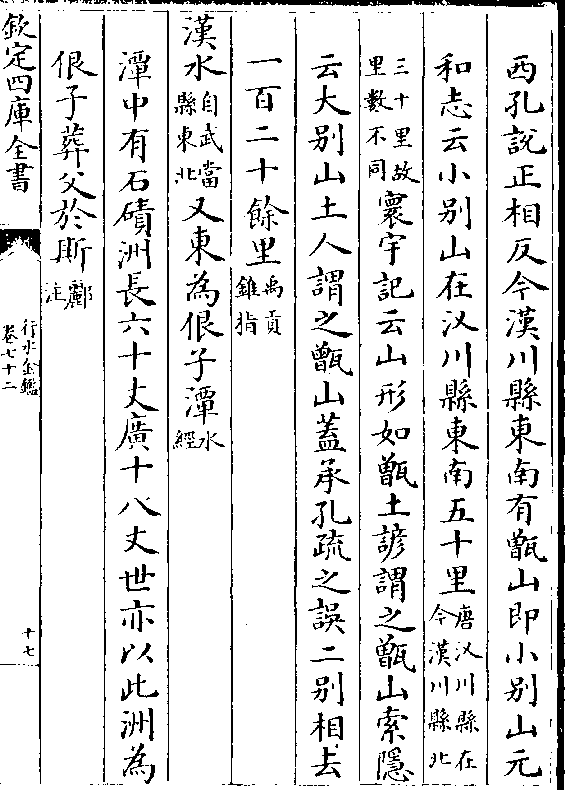 西孔說正相反今漢川縣東南有甑山即小别山元
和志云小别山在汊川縣東南五十里唐汊川縣在今漢川縣北
三十里故里數不同寰宇記云山形如甑土諺謂之甑山索隱
云大别山土人謂之甑山蓋承孔疏之誤二别相去
一百二十餘里禹貢錐指
漢水自武當縣東北又東為佷子潭水經
潭中有石磧洲長六十丈廣十八丈世亦以此洲為
佷子葬父於斯酈注
欽定四庫全書
行水金鑑
卷七十二
十七